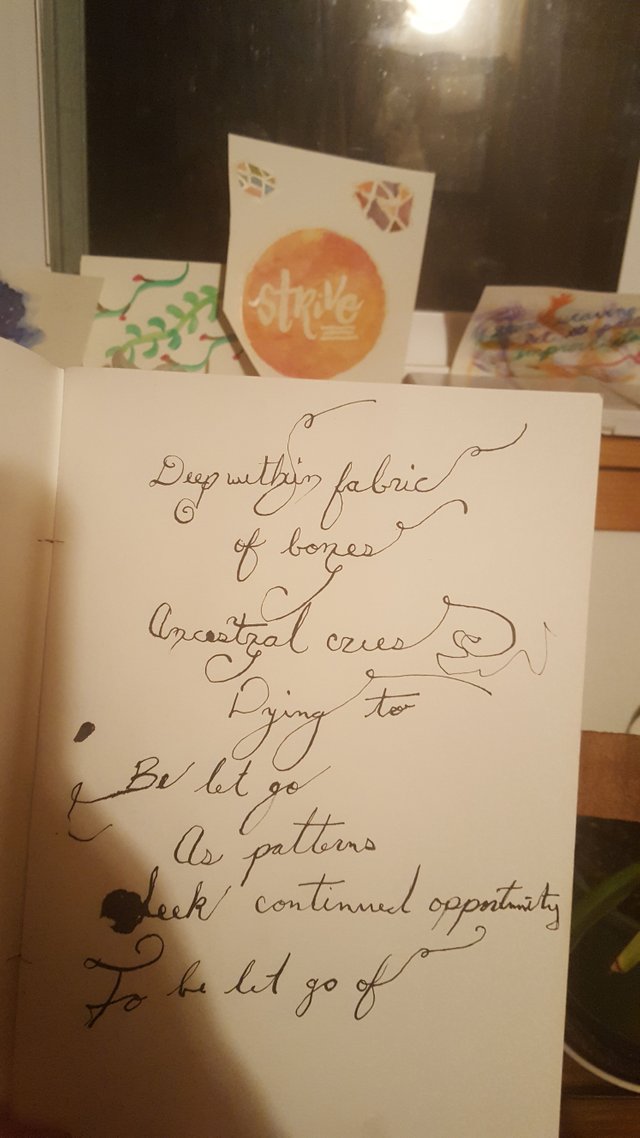 strive
Deep within fabric
of bones
Ancestral cries
Dying to
Be let go
As patterns
Seek continued opportunity
To be let go of